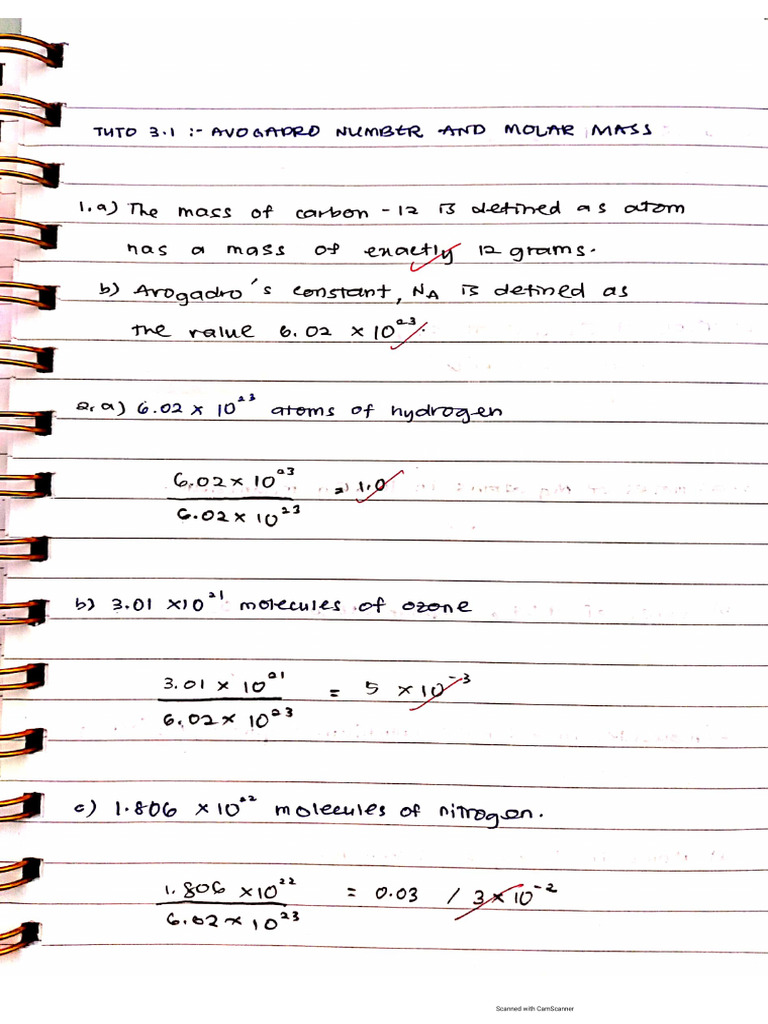 TUTO 3.1 :- AVOGADRO NUMBER AND MOLAR MASS
1.a) The mass of carbon - 12 is defined as atom
has a mass of exactly 12 grams.
b) Avogadro's constant, NA is defined as
the value 6.02 × 10²³.
2. a) 6.02 × 10²³ atoms of hydrogen
6.02 × 10²³ = 1.0
6.02 × 10²³
b) 3.01 × 10²¹ molecules of ozone
3.01 × 10²¹ = 5 × 10⁻³
6.02 × 10²³
c) 1.806 × 10²² molecules of nitrogen.
1.806 × 10²² = 0.03 / 3 × 10⁻²
6.02 × 10²³
Scanned with CamScanner